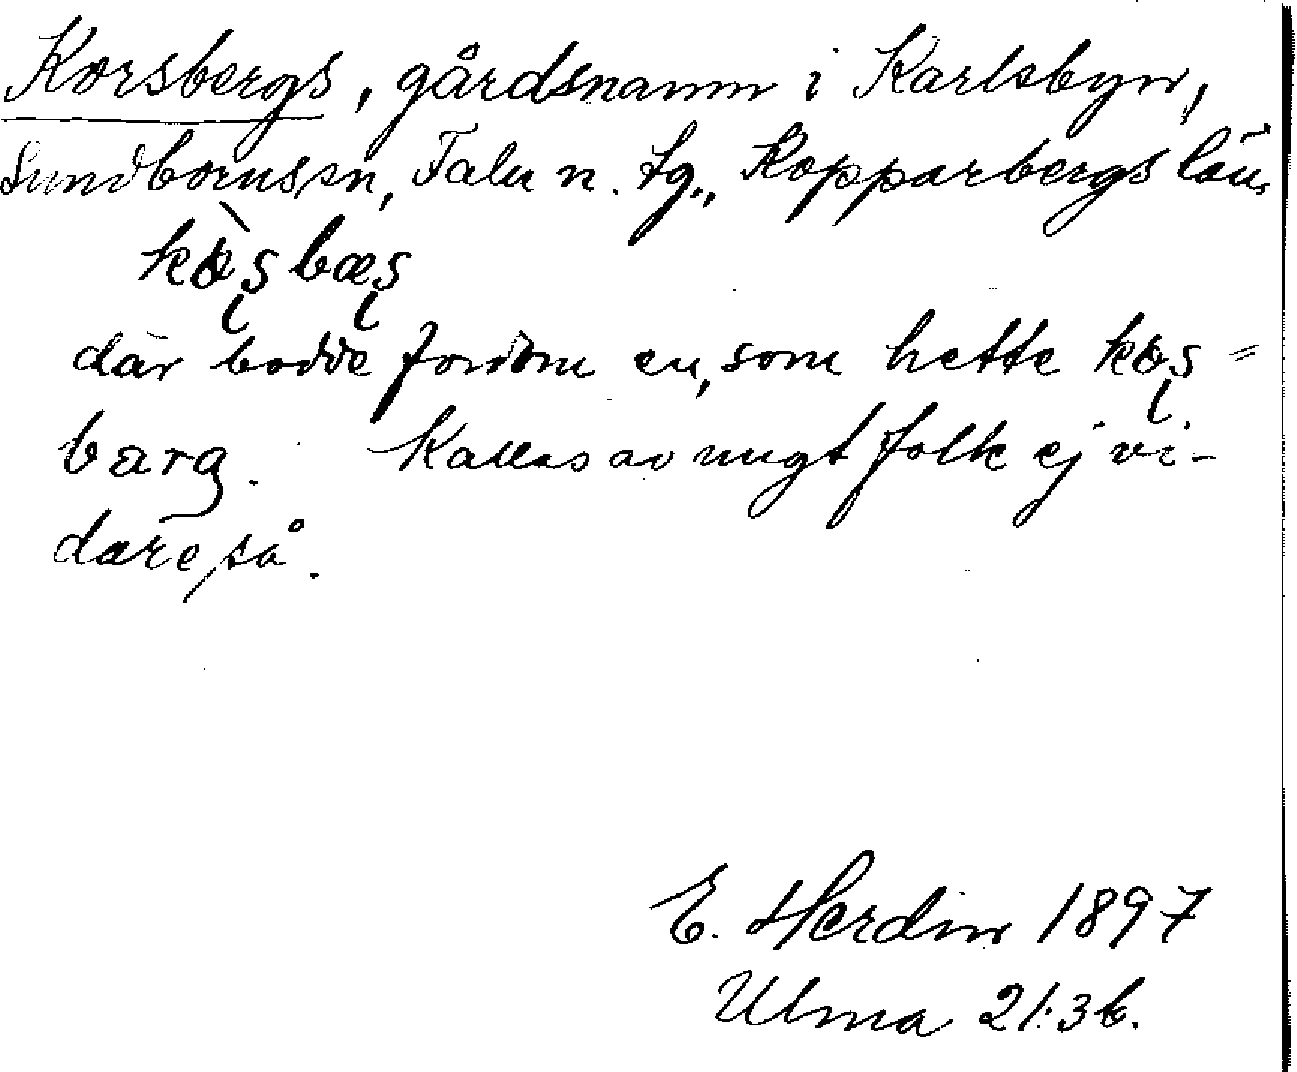 Korsbergs, gårdsnamn i Karlsbyn,
Sundborns sn, Falu n. tg., Kopparbergs län.
kòʂbæʂ
där bodde fordom en, som hette koʂ=
barg. Kallas av ungt folk ej vi-
dare så.
E. Herdin 1897
Ulma 21:3b.